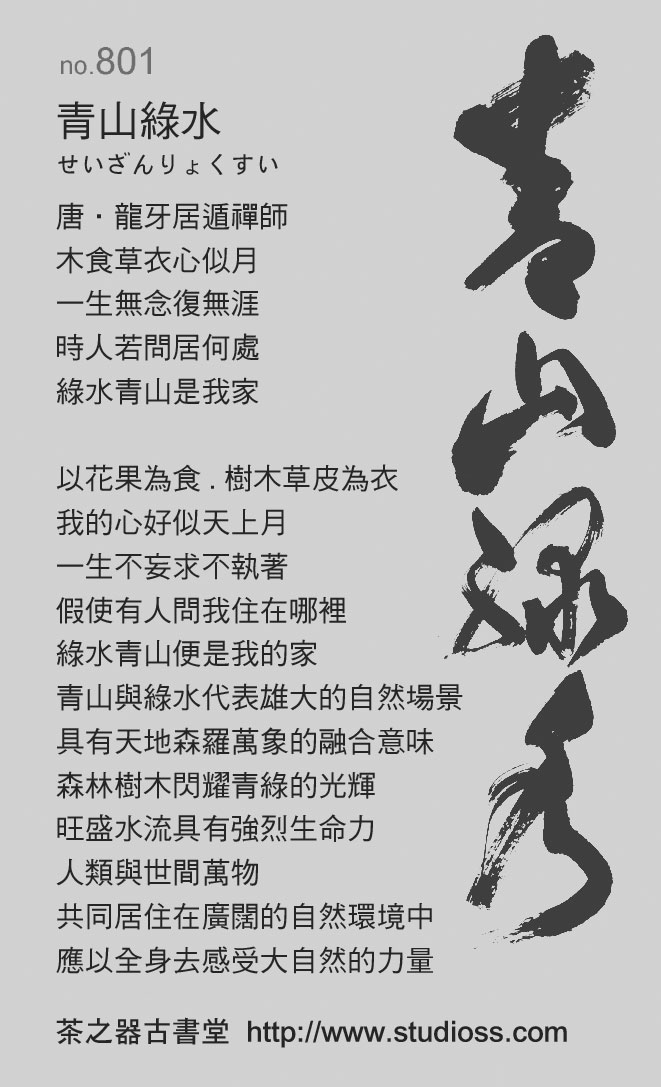 no.801
青山綠水
せいざんりょくすい
唐・龍牙居遁禪師
木食草衣心似月
一生無念復無涯
時人若問居何處
綠水青山是我家
以花果為食 . 樹木草皮為衣
我的心好似天上月
一生不妄求不執著
假使有人問我住在哪裡
綠水青山便是我的家
青山與綠水代表雄大的自然場景
具有天地森羅萬象的融合意味
森林樹木閃耀青綠的光輝
旺盛水流具有強烈生命力
人類與世間萬物
共同居住在廣闊的自然環境中
應以全身去感受大自然的力量
茶之器古書堂 http://www.studioss.com
青山綠水